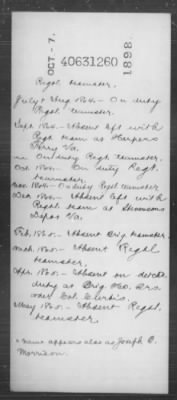 OCT - 7.
40631260
1898.
Regtl teamster.
July & Aug 1864. - On duty
Regtl. teamster.
Sept 1864. - Absent left with
Regtl team at Harpers
Ferry Va.
On duty Regtl. teamster.
Oct. 1864. - On duty Regt.
teamster.
Nov. 1864. - On duty Regtl teamster
Dec. 1864. - Absent left with
Regtl team at Stevensons
Depot Va.
Feb. 1865. - Absent Brig teamster
Mch. 1865. - Absent Regtl
teamster.
Apr. 1865. - Absent on detchd
duty at Brig Hd. Qrs
order Col. Curtis.
May 1865. - Absent Regtl.
teamster.
Name appears also as Joseph C.
Morrison.